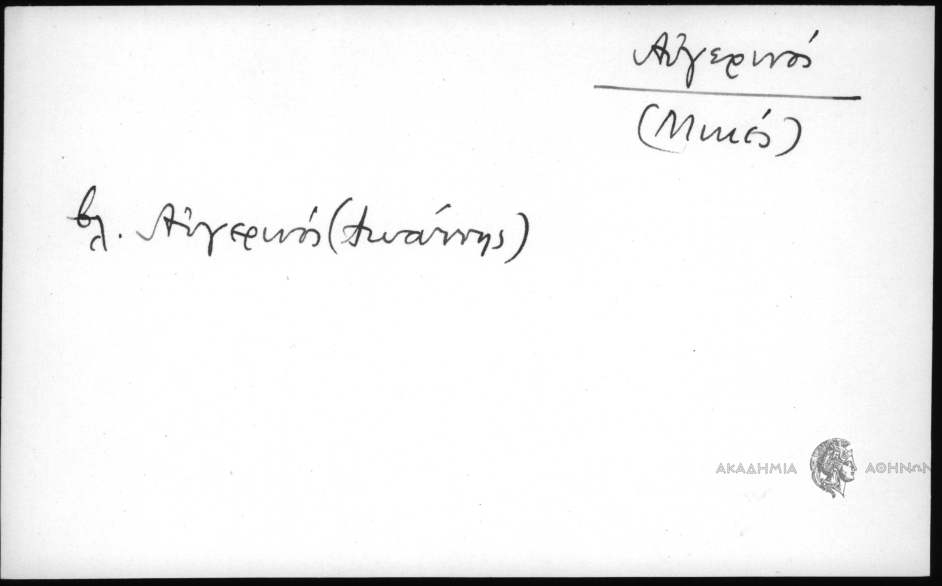 Αὐγερινός
(Μικές)
βλ. Αὐγερινός (Ἰωάννης)
ΑΚΑΔΗΜΙΑ ΑΘΗΝΩΝ